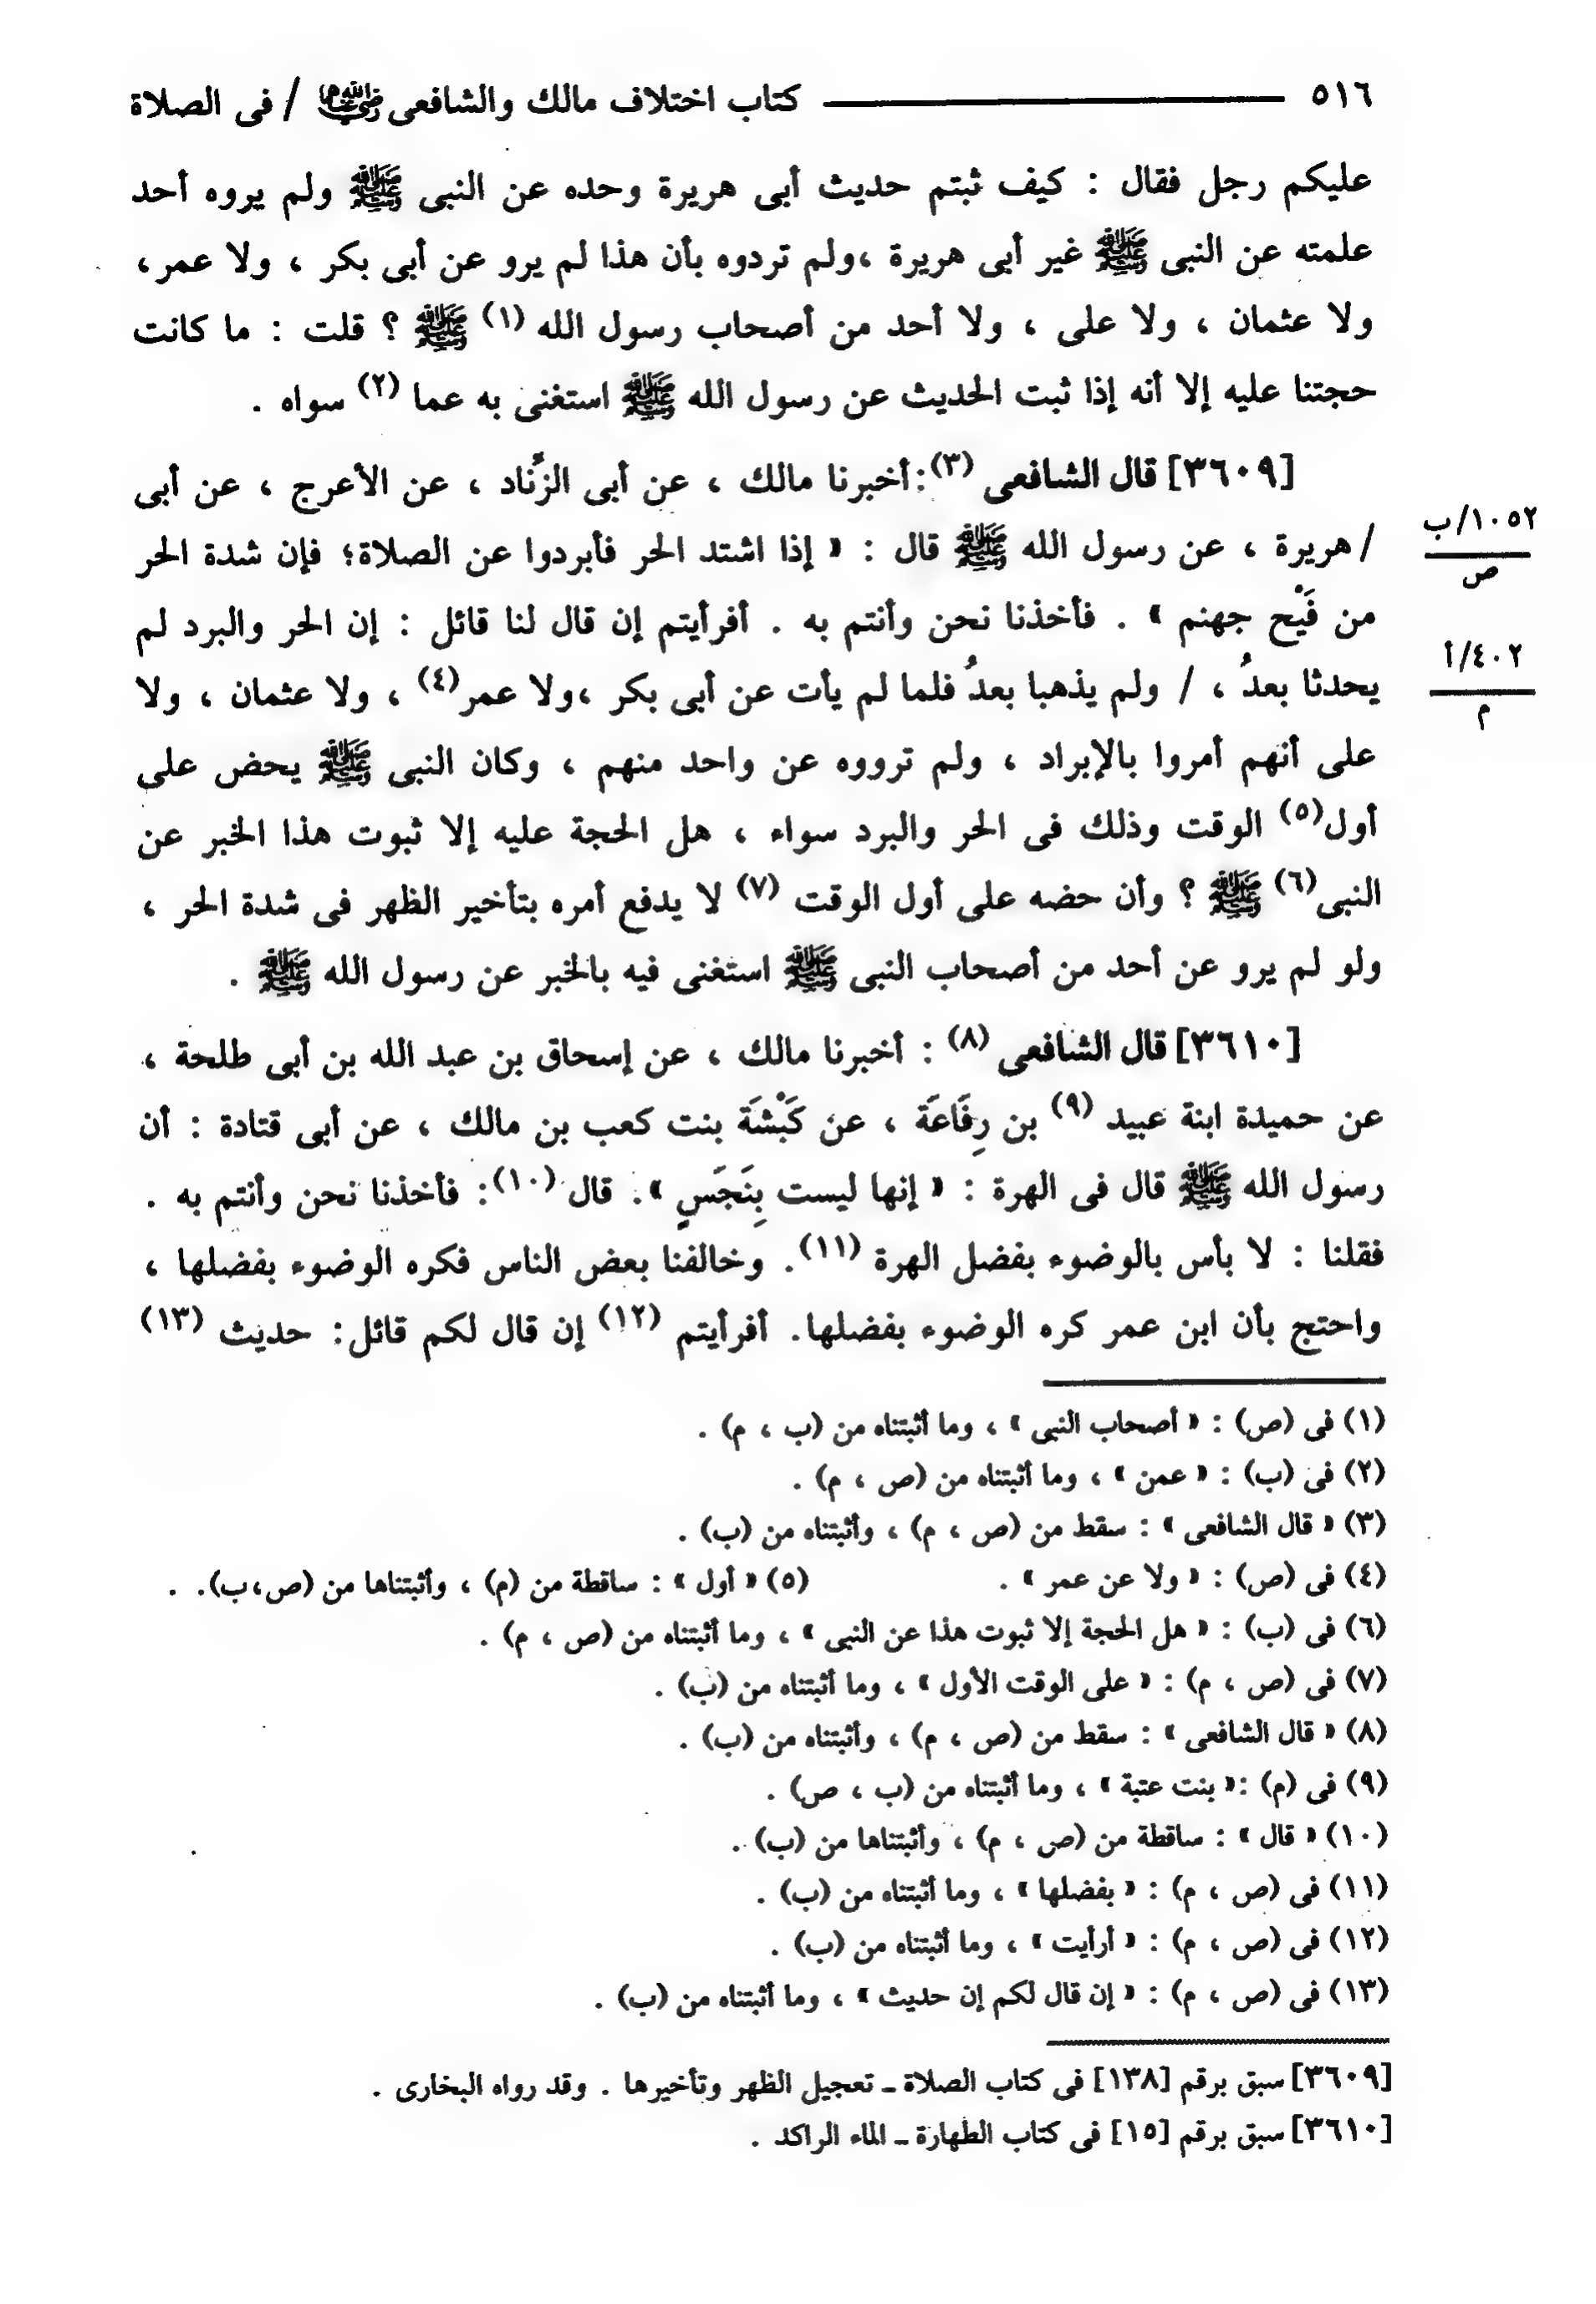 ٥١٦ ـــــــ كتاب اختلاف مالك والشافعى رضي الله عنهما / فى الصلاة
عليكم رجل فقال : كيف ثبتم حديث أبى هريرة وحده عن النبى ﷺ ولم يروه أحد
علمته عن النبى ﷺ غير أبى هريرة ،ولم تردوه بأن هذا لم يرو عن أبى بكر ، ولا عمر،
ولا عثمان ، ولا على ، ولا أحد من أصحاب رسول الله (١) ﷺ ؟ قلت : ما كانت
حجتنا عليه إلا أنه إذا ثبت الحديث عن رسول الله ﷺ استغنى به عما (٢) سواه .
[٣٦٠٩] قال الشافعى (٣):أخبرنا مالك ، عن أبى الزِّناد ، عن الأعرج ، عن أبى
/ هريرة ، عن رسول الله ﷺ قال : « إذا اشتد الحر فأبردوا عن الصلاة؛ فإن شدة الحر
١٠٥٢/ب
ص
من فَيْح جهنم » . فأخذنا نحن وأنتم به . أفرأيتم إن قال لنا قائل : إن الحر والبرد لم
٤٠٢/أ
م
يحدثا بعدُ ، / ولم يذهبا بعدُ فلما لم يأت عن أبى بكر ،ولا عمر(٤) ، ولا عثمان ، ولا
على أنهم أمروا بالإبراد ، ولم ترووه عن واحد منهم ، وكان النبى ﷺ يحض على
أول(٥) الوقت وذلك فى الحر والبرد سواء ، هل الحجة عليه إلا ثبوت هذا الخبر عن
النبى(٦) ﷺ ؟ وأن حضه على أول الوقت (٧) لا يدفع أمره بتأخير الظهر فى شدة الحر ،
ولو لم يرو عن أحد من أصحاب النبى ﷺ استغنى فيه بالخبر عن رسول الله ﷺ .
[٣٦١٠] قال الشافعى (٨) : أخبرنا مالك ، عن إسحاق بن عبد الله بن أبى طلحة ،
عن حميدة ابنة عبيد (٩) بن رِفَاعَة ، عن كَبْشَة بنت كعب بن مالك ، عن أبى قتادة : أن
رسول الله ﷺ قال فى الهرة : « إنها ليست بِنَجَسٍ ». قال (١٠): فأخذنا نحن وأنتم به .
فقلنا : لا بأس بالوضوء بفضل الهرة (١١). وخالفنا بعض الناس فكره الوضوء بفضلها ،
واحتج بأن ابن عمر كره الوضوء بفضلها. أفرأيتم (١٢) إن قال لكم قائل: حديث (١٣)
(١) فى (ص) : « أصحاب النبى » ، وما أثبتناه من (ب ، م) .
(٢) فى (ب) : « عمن » ، وما أثبتناه من (ص ، م) .
(٣) « قال الشافعى » : سقط من (ص ، م) ، وأثبتناه من (ب) .
(٤) فى (ص) : « ولا عن عمر » . (٥) « أول » : ساقطة من (م) ، وأثبتناها من (ص،ب). .
(٦) فى (ب) : « هل الحجة إلا ثبوت هذا عن النبى » ، وما أثبتناه من (ص ، م) .
(٧) فى (ص ، م) : « على الوقت الأول » ، وما أثبتناه من (ب) .
(٨) « قال الشافعى » : سقط من (ص ، م) ، وأثبتناه من (ب) .
(٩) فى (م) :« بنت عتبة » ، وما أثبتناه من (ب ، ص) .
(١٠) « قال » : ساقطة من (ص ، م) ، وأثبتناها من (ب) .
(١١) فى (ص ، م) : « بفضلها » ، وما أثبتناه من (ب) .
(١٢) فى (ص ، م) : « أرأيت » ، وما أثبتناه من (ب) .
(١٣) فى (ص ، م) : « إن قال لكم إن حديث » ، وما أثبتناه من (ب) .
[٣٦٠٩] سبق برقم [١٣٨] فى كتاب الصلاة ـ تعجيل الظهر وتأخيرها . وقد رواه البخارى .
[٣٦١٠] سبق برقم [١٥] فى كتاب الطهارة ـ الماء الراكد .